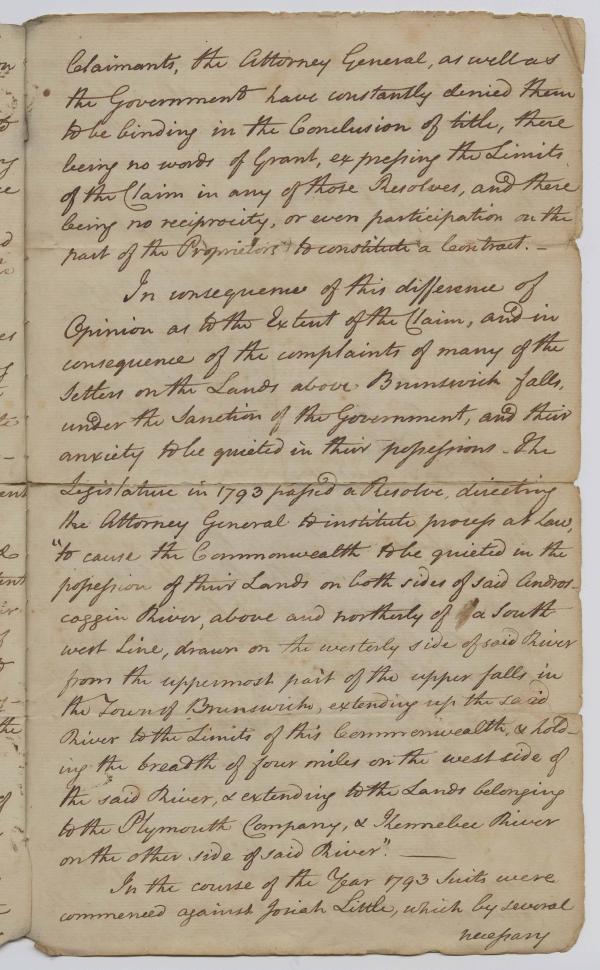 Claimants, the Attorney General, as well as
the Government have constantly denied them
to be binding in the Conclusion of title, there
being no words of Grant, expressing the Limits
of the Claim in any of those Resolves, and there
being no reciprocity, or even participation on the
part of the Proprietors to constitute a Contract. –
In consequence of this difference of
Opinion as to the Extent of the Claim, and in
consequence of the complaints of many of the
Setlers on the Lands above Brunswick falls,
under the Sanction of the Government, and their
anxiety to be quieted in their possessions – The
Legislature in 1793 passed a Resolve, directing
the Attorney General to institute process at Law,
"to cause the Commonwealth to be quieted in the
possession of their Lands on both sides of said Andros-
coggin River, above and northerly of a South
west Line, drawn on the westerly side of said River
from the uppermost part of the upper falls in
the Town of Brunswick, extending up the said
River to the Limits of this Commonwealth, & hold-
ing the breadth of four miles on the west side of
the said River, & extending to the Lands belonging
to the Plymouth Company, & Kennebec River
on the other side of said River". —
In the course of the Year 1793 Suits were
commenced against Josiah Little, which by several
necessary